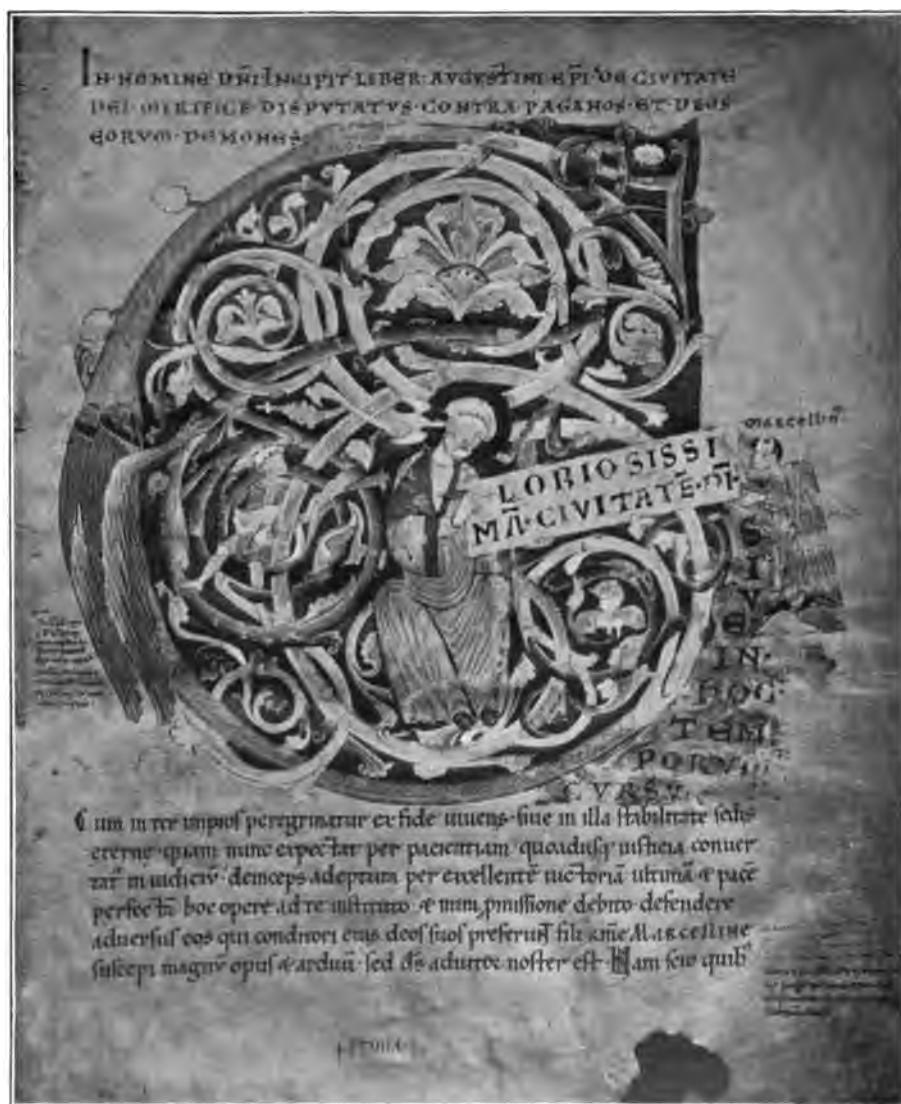 IN·NOMINE DN̄I·INCIPIT LIBER·AVGVSTINI EP̄I DE CIVITATE
DEI MIRIFICE DISPVTATVS·CONTRA PAGANOS·ET DEOS
EORVM·DEMONES
Marcellin
LORIOSISSI
MĀ·CIVITATĒ·DĪ·
SIVE
IN·
HOC
TEM
PORVM
CVRSV
Cum inter impios peregrinatur ex fide uiuens· siue in illa stabilitate sedis
eterne· quam nunc expectat per pacientiam· quoadusq; iusticia conuer
tat in iudiciū· deinceps adeptura per excellentē uictoriā ultimā & pacē
perfectā· hoc opere ad te instituto & mini p̱missione debito· defendere
aduersus eos qui conditori eius deos suos preferunt fili kme MARCELLINE
suscepi magnū opus & arduū· sed dꝭ adiutor noster est· Nam scio quib